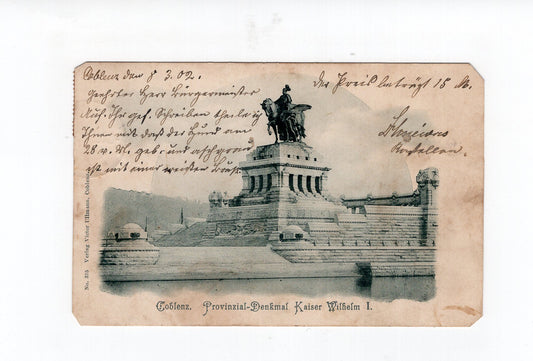 Coblenz den 8 3.02.
Geehrter Herr Bürgermeister
Auf Ihr gef. Schreiben theile ich
Ihnen mit daß der Hund am
28 v. M. geb. und
ist mit einer weißen Brust.
der Preis beträgt 15 M.
Kastellan.
Coblenz. Provinzial-Denkmal Kaiser Wilhelm I.
No. 315 Verlag Victor Ullmann, Coblenz